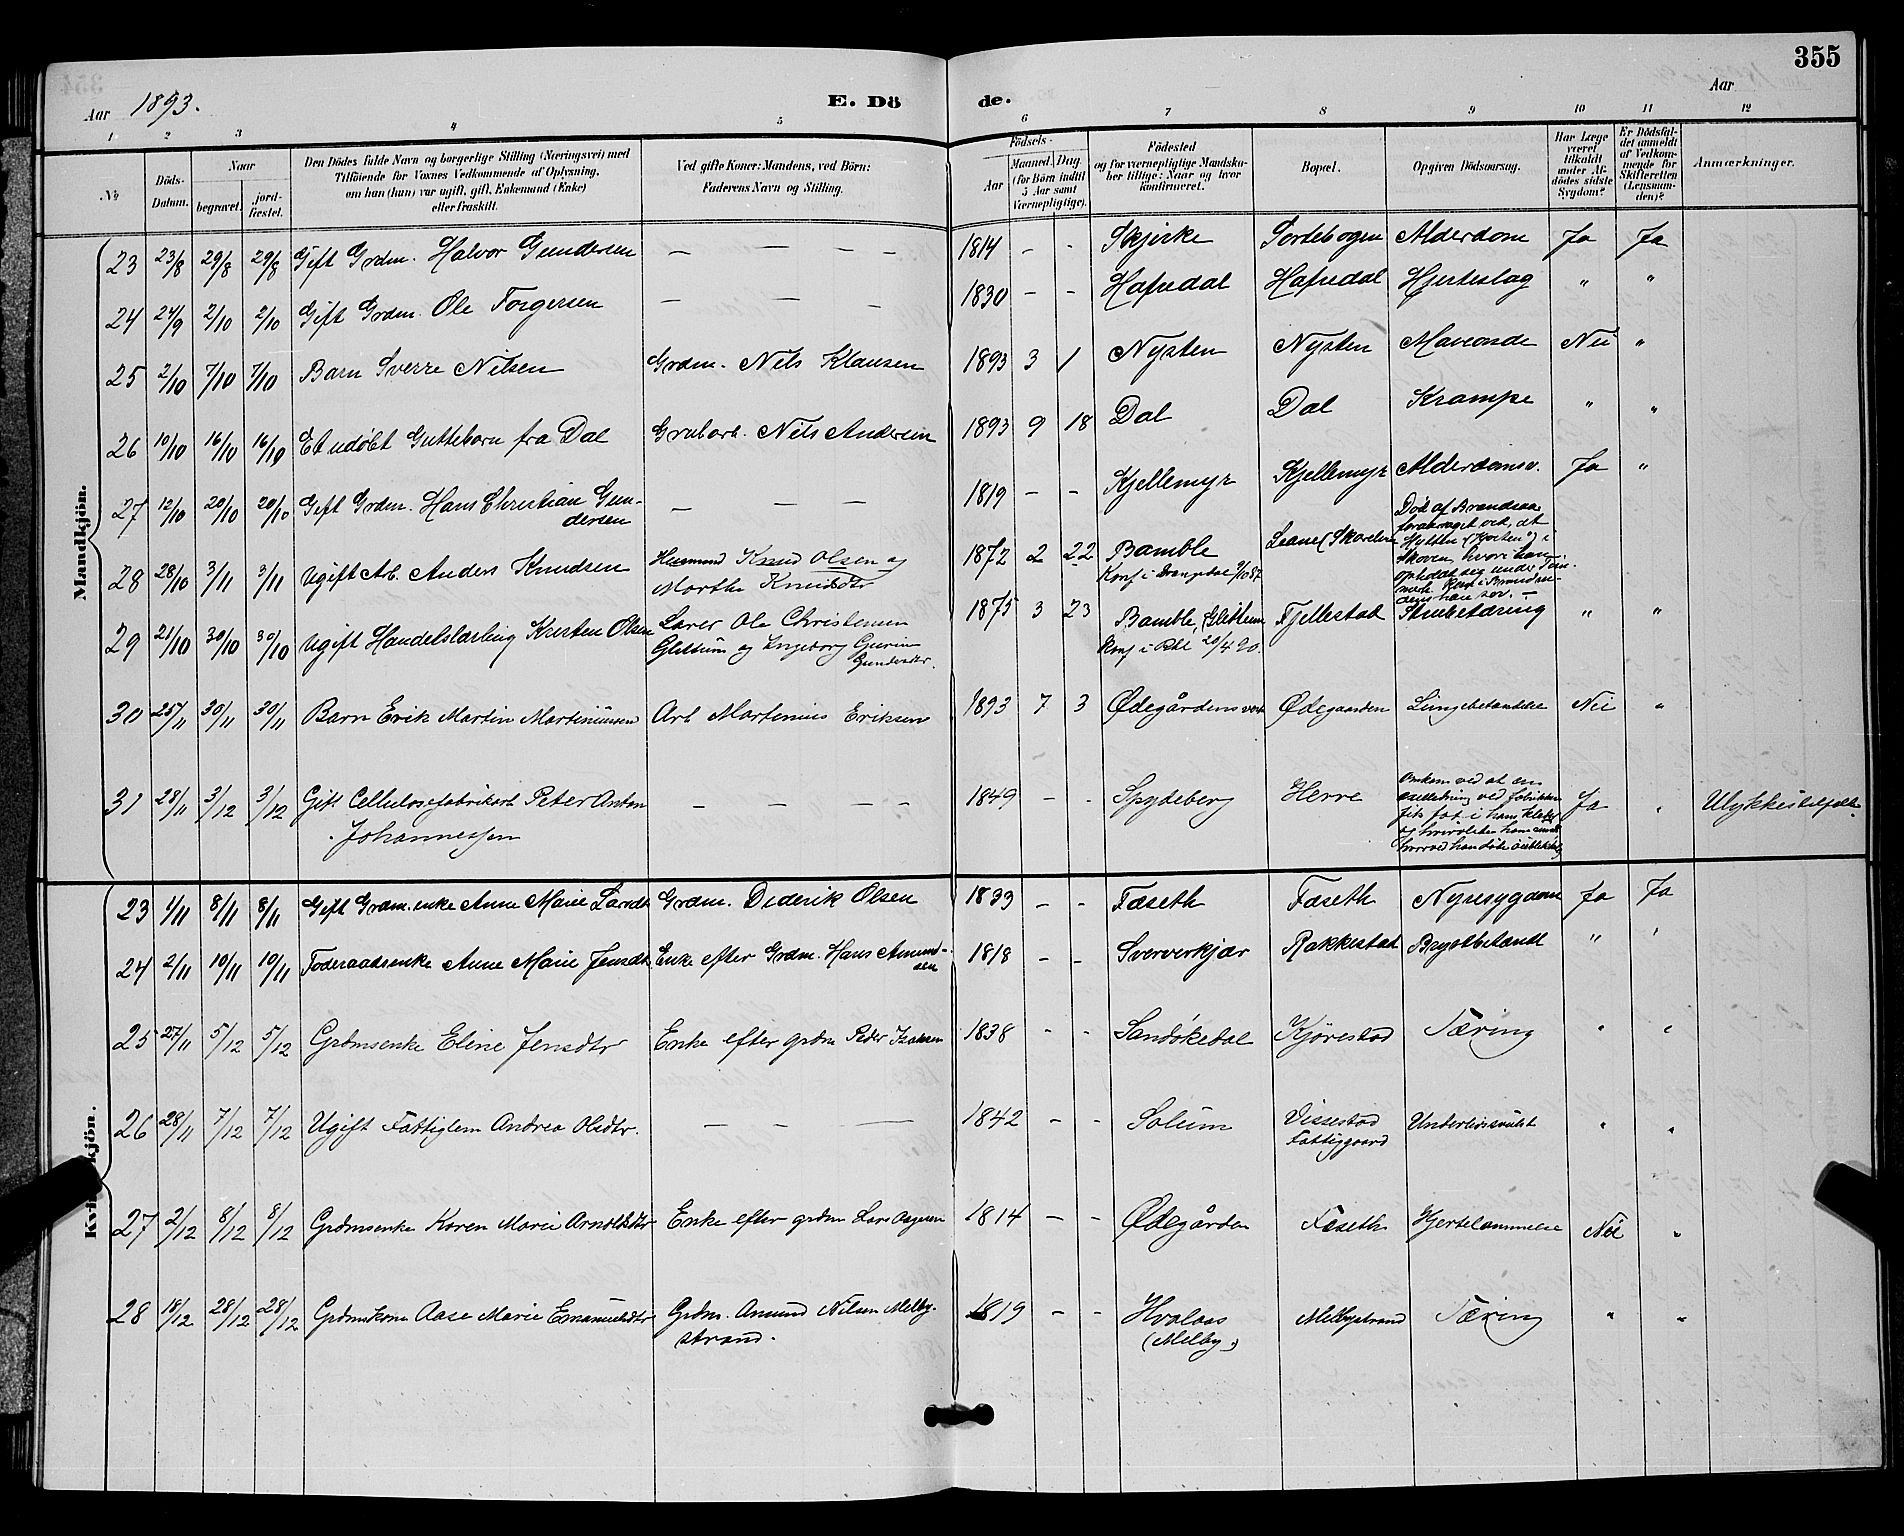 355
Aar 1893. E. Dö de. Aar
1 2 3 4 5 6 7 8 9 10 11 12
No
Döds-Datum.
Naar
begravet.
jord-fæstet.
Den Dödes fulde Navn og borgerlige Stilling (Næringsvei) med
Tilföiende for Voxnes Vedkommende af Oplysning,
om han (hun) var ugift, gift, Enkemand (Enke)
eller fraskilt.
Ved gifte Koner: Mandens, ved Börn:
Faderens Navn og Stilling.
Födsels-
Aar
Maaned. Dag.
(for Börn indtil
5 Aar samt
Værnepligtige).
Födested
og for værnepligtige Mandska-
ber tillige: Naar og hvor
konfirmeret.
Bopæl.
Opgiven Dödsaarsag.
Har Læge
været
tilkaldt
under Af-
dödes sidste
Sygdom?
Er Dödsfal-
det anmeldt
af Vedkom-
mende for
Skifteretten
(Lensman-
den)?
Anmærkninger.
Mandkjön.
23 23/8 29/8 29/8 Gift Grdm. Halvor Gundersen — — — 1814 - - Skjerke Sortebogen Alderdom Ja Ja
24 24/9 2/10 2/10 Gift Grdm. Ole Torgersen — — — 1830 - - Hafredal Hafredal Hjerteslag " "
25 2/10 7/10 7/10 Barn Sverre Nilsen Grdm. Nils Klausen 1893 3 1 Nysten Nysten Nei "
26 10/10 16/10 16/10 Et udöbt Guttebarn fra Dal Grubarb. Nils Andersen 1893 9 18 Dal Dal Krampe " "
27 12/10 20/10 20/10 Gift Grdm. Hans Christian Gun-
dersen — — — 1819 - - Kjellemyr Kjellemyr Alderdomsv. Ja "
28 28/10 3/11 3/11 Ugift Arb. Anders Knudsen Husmand Knud Olsen og
Marthe Knudsdtr 1872 2 22 Bamble
Konf i Drangedal 9/10 87 Död af Brandsaar
foraarsaget ved, at
Hytten i
Skoven, hvori han
opholdt sig under
29 21/10 30/10 30/10 Ugift Handelslærling Kristen Olsen Lærer Ole Christensen
Glittum og Ingeborg Gurine
Gundersdtr. 1875 3 23 Bamble, (Glittum
Konf i 20/4 90. Fjellestad Strubetæring " "
30 25/11 30/11 30/11 Barn Erik Martin Martiniussen Arb Martinius Eriksen 1893 7 3 Ødegårdens verk Ødegaarden Lungebetændelse Nei "
31 28/11 3/12 3/12 Gift Cellulosefabrikarb Peter Anton
Johannessen — — — 1849 - - Spydeberg Herre Omkom ved at en
axelledning ved fabrikken
fik fat i hans Klæder
og hvirvlede ham rundt
hvorved han döde öieblikkelig Ja " Ulykkestilfælde.
Kvindekjön.
23 1/11 8/11 8/11 Gift Grdm.enke Anne Marie Larsdtr Grdm. Diderik Olsen 1833 - - Fæseth Fæseth Nyresygdom Ja Ja
24 2/11 10/11 10/11 Foderaadsenke Anne Marie Jensdtr. Enke efter Grdm. Hans Amund-
sen 1818 - - Sververkjær Rakkestad Brystbetændt " "
25 27/11 5/12 5/12 Grdmsenke Eline Jensdtr Enke efter grdm Peder Isaksen 1838 - - Sandökedal Kjörestad Tæring " "
26 28/11 7/12 7/12 Ugift Fattiglem Andrea Olsdtr. — — — 1842 - - Solum Vissestad
Fattiggaard Underlivssvulst " "
27 2/12 8/12 8/12 Grdmsenke Karen Marie Arnoldsdtr Enke efter grdm Lars Aagesen 1814 - - Ødegården Fæseth Hjertelammelse Nei "
28 18/12 28/12 28/12 Grdmkone Aase Marie Emanuelsdtr Grdm. Amund Nilsen Melby-
strand. 1819 - - Hvalaas
(Melby) Melbystrand Tæring " "